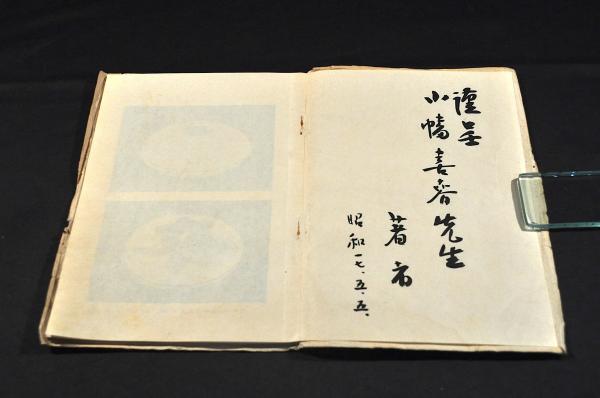 謹呈
小幡喜斉先生
著者
昭和一七、五、五、